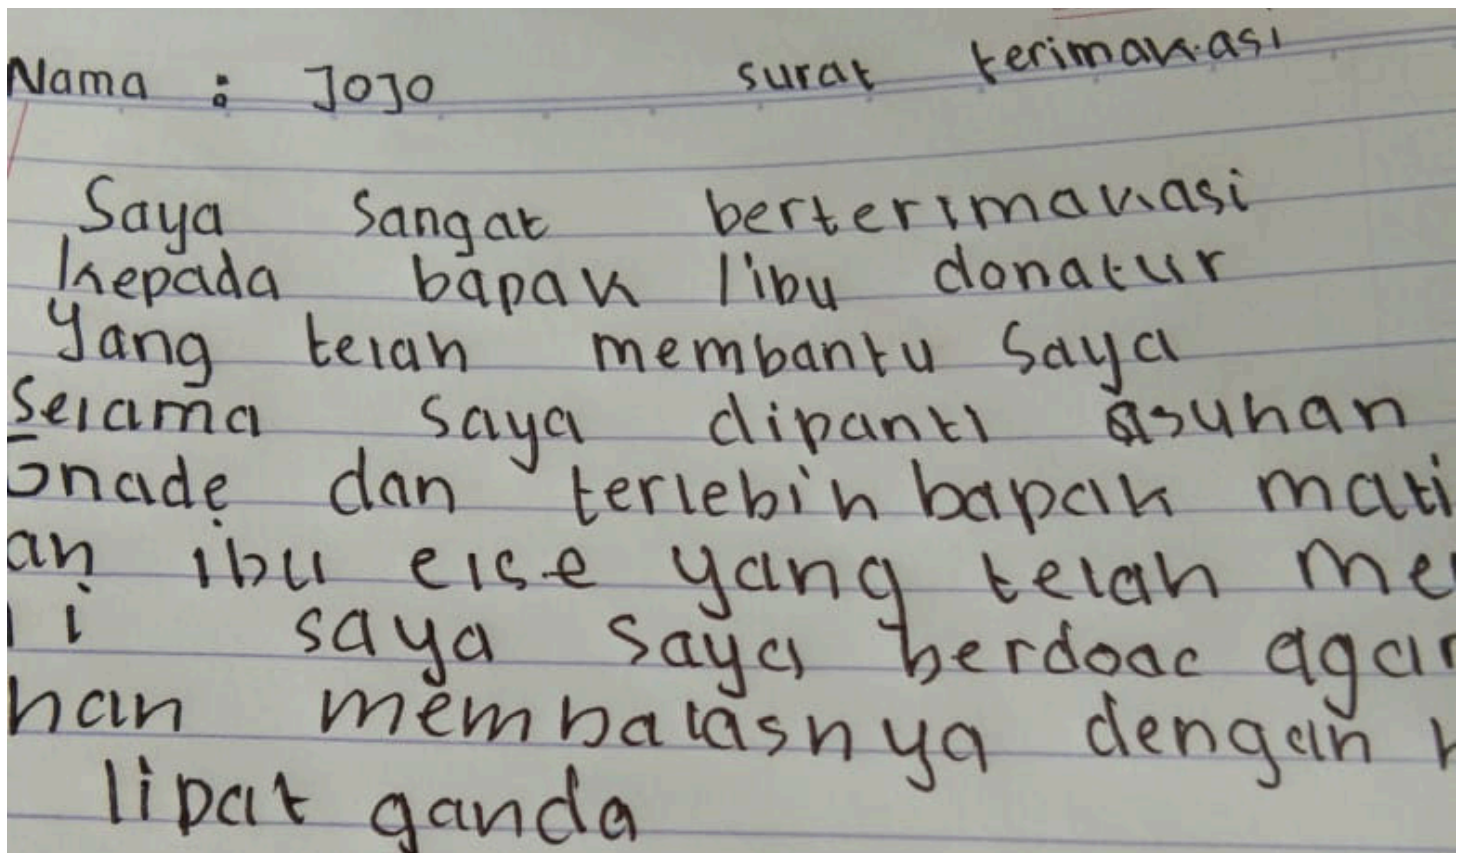 Nama : JOJO surat terimakasi
Saya Sangat berterimakasi
kepada bapak / ibu donatur
yang telah membantu Saya
Selama saya dipanti asuhan
dan terlebih bapak
ibu else yang telah
saya saya berdoa agar
membalasnya dengan
lipat ganda